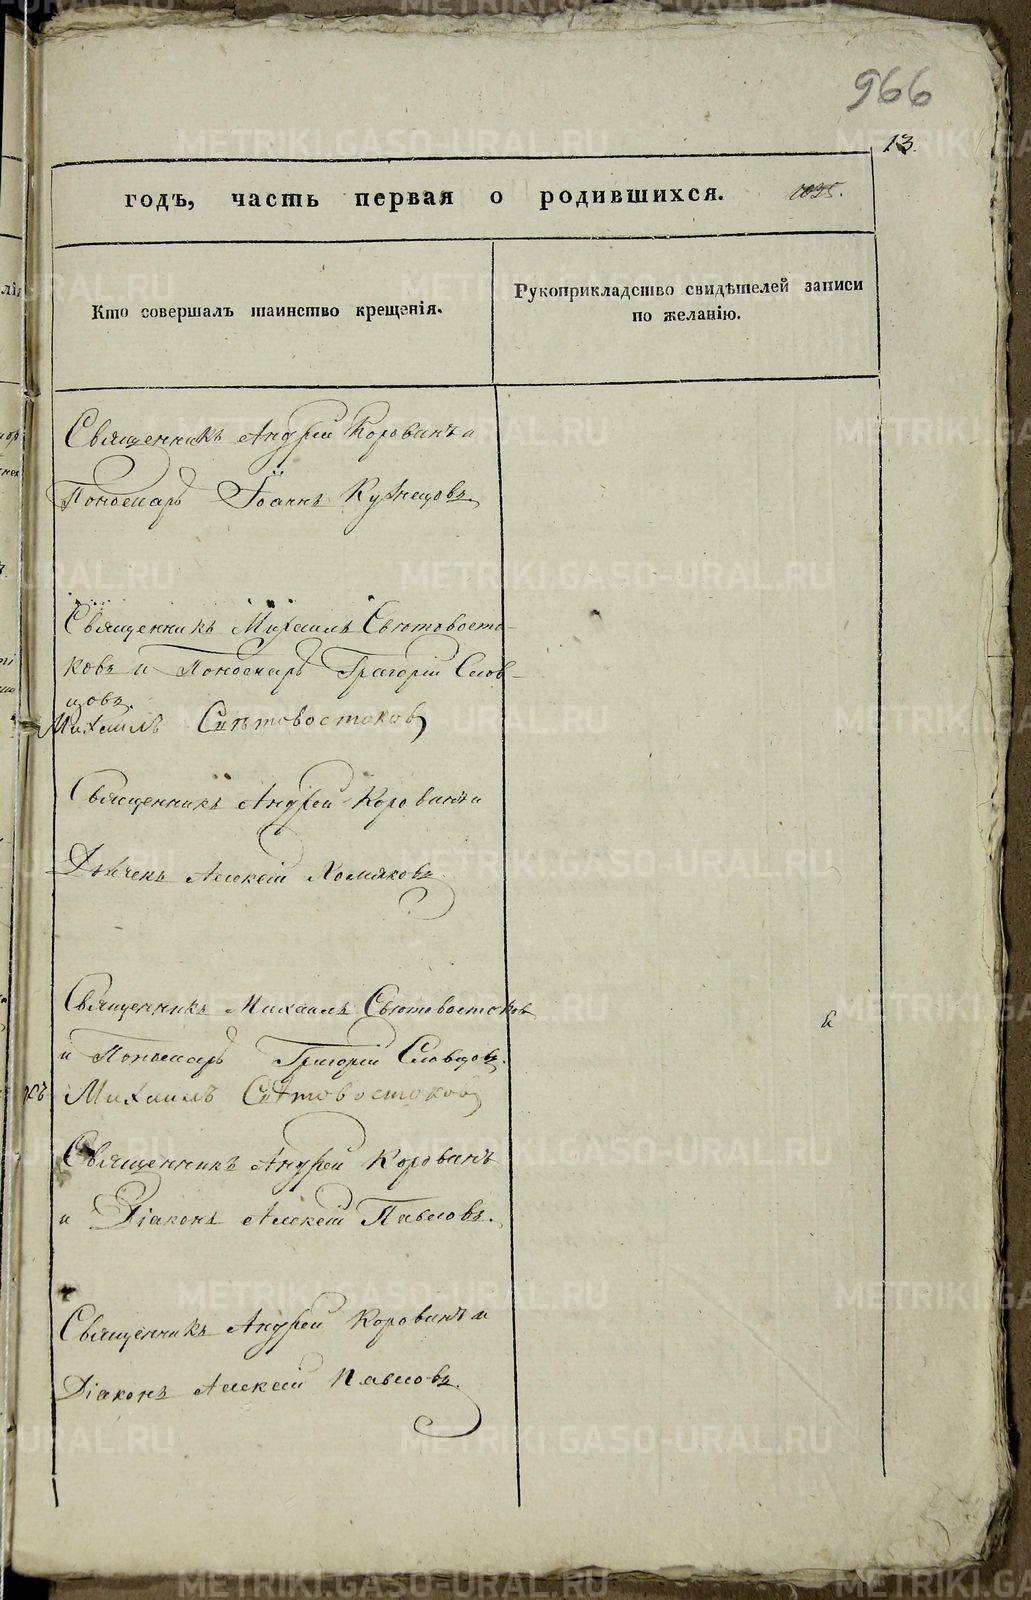 966
13.
годъ, часть первая о родившихся.
Кто совершалъ таинство крещенія.
Рукоприкладство свидѣтелей записи
по желанію.
Священникъ Андрей Коровинъ и
Пономарь Іоаннъ Кузнецовъ
Священникъ Михаилъ Свѣтовосто-
ковъ и Пономарь Григорій Слов-
цовъ.
Михаилъ Свѣтовостоковъ
Священникъ Андрей Коровинъ и
Дьячекъ Алексій Хомяковъ
Священникъ Михаилъ Свѣтовостоковъ
и Пономарь Григорій Словцовъ.
Михаилъ Свѣтовостоковъ
Священникъ Андрей Коровинъ
и Діаконъ Алексій Павловъ.
Священникъ Андрей Коровинъ и
Діаконъ Алексій Павловъ.
METRIKI.GASO-URAL.RU